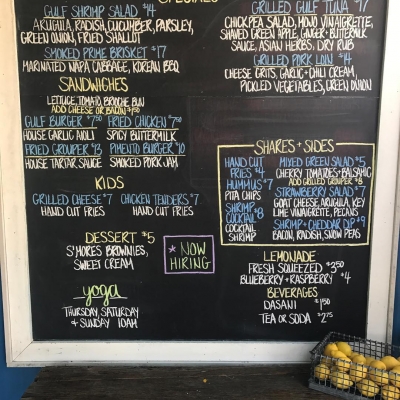 SPECIALS
GULF SHRIMP SALAD $14
ARUGULA, RADISH, CUCUMBER, PARSLEY,
GREEN ONION, FRIED SHALLOT
SMOKED PRIME BRISKET $17
MARINATED NAPA CABBAGE, KOREAN BBQ
SANDWICHES
LETTUCE, TOMATO, BRIOCHE BUN
ADD CHEESE OR BACON
GULF BURGER
HOUSE GARLIC AIOLI
FRIED CHICKEN
SPICY BUTTERMILK
FRIED GROUPER $13
HOUSE TARTAR SAUCE
PIMENTO BURGER $10
SMOKED PORK JAM
KIDS
GRILLED CHEESE $7
HAND CUT FRIES
CHICKEN TENDERS $7
HAND CUT FRIES
DESSERT $5
S'MORES BROWNIES,
SWEET CREAM
* NOW
HIRING
yoga
THURSDAY, SATURDAY
& SUNDAY 10AM
GRILLED GULF TUNA $17
CHICKPEA SALAD, VINAIGRETTE,
SHAVED GREEN APPLE, GINGER-BUTTERMILK
SAUCE, ASIAN HERBS, DRY RUB
GRILLED PORK LOIN
CHEESE GRITS, GARLIC + DILL CREAM,
PICKLED VEGETABLES, GREEN ONION
SHARES + SIDES
HAND CUT
FRIES $4
HUMMUS $7
PITA CHIPS
SHRIMP
COCKTAIL $8
COCKTAIL
SHRIMP
MIXED GREEN SALAD $5
CHERRY TOMATOES + BALSAMIC
ADD GRILLED GROUPER $8
STRAWBERRY SALAD $7
GOAT CHEESE, ARUGULA, KEY
LIME VINAIGRETTE, PECANS
SHRIMP + CHEDDAR DIP $9
BACON, RADISH, SNOW PEAS
LEMONADE
FRESH SQUEEZED $3.50
BLUEBERRY + RASPBERRY $4
BEVERAGES
DASANI $1.50
TEA OR SODA $2.75